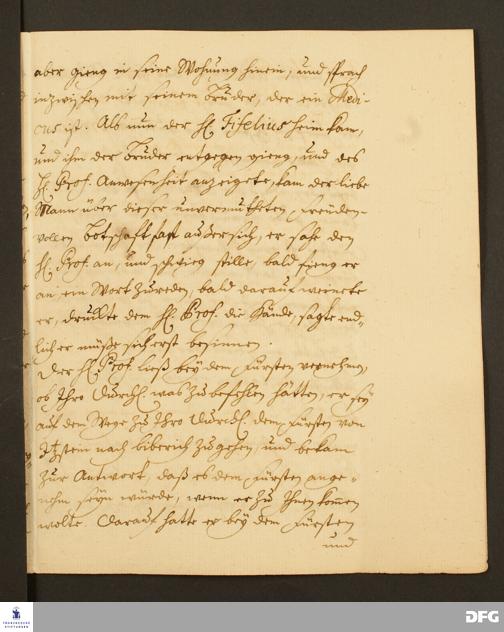 aber gieng in seine Wohnung hinein, und sprach
inzwischen mit seinem Bruder, der ein Medi-
cus ist. Als nun der H. Fiselius heim kam,
und ihm der Bruder entgegen gieng, und des
H. Prof. Anwesenheit anzeigete, kam der liebe
Mann über dieser unvermutheten freuden-
vollen Botschaft fast außer sich, er sahe den
H. Prof. an, und schwieg stille, bald fieng er
an ein Wort zu reden, bald darauf weinete
er, druckte dem H. Prof. die Hände, sagte end-
lich er müße sich erst besinnen.
Der H. Prof. ließ bey dem Fürsten vernehmen,
ob Ihro Durchl. was zu befehlen hätten, er sey
auf dem Wege zu Ihro Durchl. dem Fürsten von
Itzstein nach biberich zu gehen, und bekam
zur Antwort, daß es dem Fürsten ange-
nehm seyn würde, wenn er zu Ihnen kom̅en
wolte. Darauf hatte er bey dem Fürsten
und
FRANCKESCHE
STIFTUNGEN
DFG